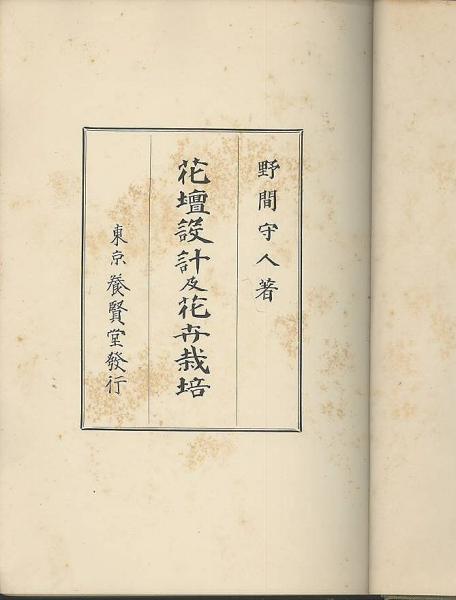 野間守人著
花壇設計及花卉栽培
東京養賢堂發行